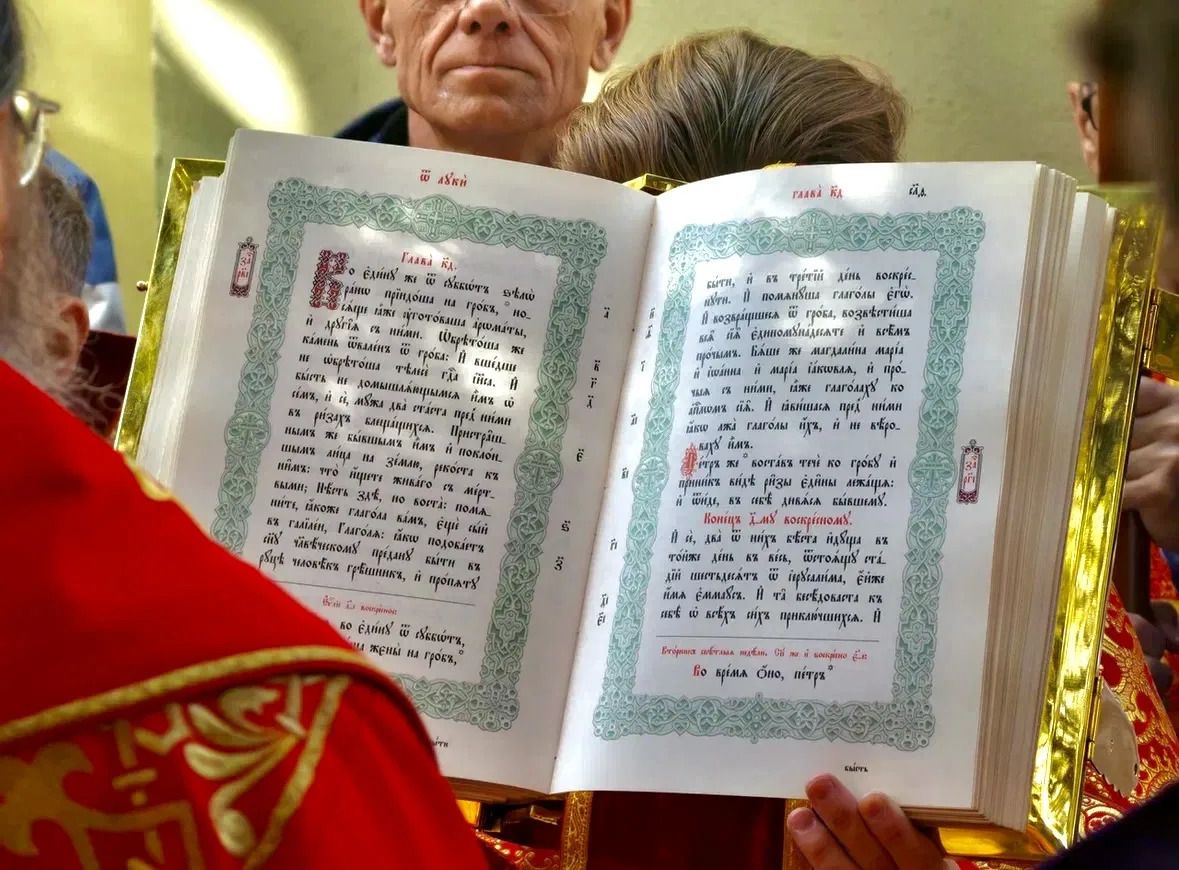 Ѿ лꙋкѝ
Глава̀ к҃д.
Во є҆ди́нꙋ же ѿ сꙋббѡ́тъ ѕѣлѡ̀
ра́нѡ прїидо́ша на гро́бъ, но-
сѧ́щѧ ꙗ҆̀же ᲂу҆гото́ваша а҆рѡма́ты,
и҆ дрꙋгі̑ѧ съ ни́ми. Ѡ҆брѣто́ша же
ка́мень ѿвале́нъ ѿ гро́ба: И҆ вше́дшѧ
не ѡ҆брѣто́ша тѣлесѐ гдⷭ҇а і҆и҃са. И҆
бы́сть не домышлѧ́ющымсѧ и҆̀мъ ѡ҆
се́мъ, и҆ сѐ, мꙋ̑жа два̀ ста́ста пред̾ ни́ми
въ ри́захъ блеща́щихсѧ. Пристра̑ш-
нымъ же бы́вшымъ и҆̀мъ и҆ покло́н-
шымъ ли́ца на зе́млю, реко́ста къ
ни̑мъ: что̀ и҆́щете жива́го съ ме́рт-
выми; Нѣ́сть здѣ̀, но воста̀: помѧ-
ни́те, ꙗ҆́коже глаго́ла ва́мъ, є҆щѐ сы́й
въ галїле́и, Глаго́лѧ: ꙗ҆́кѡ подоба́етъ
сн҃ꙋ чл҃вѣ́ческомꙋ пре́данꙋ бы́ти въ
рꙋ́цѣ человѣ̑къ грѣ̑шникъ, и҆ пропѧ́тꙋ
во є҆ди́нꙋ ѿ сꙋббѡ́тъ,
жены̑ на гро́бъ,
глава̀ к҃д
бы́ти, и҆ въ тре́тїй де́нь воскре́с-
нꙋти. И҆ помѧнꙋ́ша глаго́лы є҆гѡ̀.
И҆ возвра́щшѧсѧ ѿ гро́ба, возвѣсти́ша
всѧ̑ сїѧ̑ є҆диномꙋна́десѧте и҆ всѣ̑мъ
про́чымъ. Бѧ́ше же магдали́на марі́а
и҆ і҆ѡа́нна и҆ марі́а і҆а́кѡвлѧ, и҆ про́-
чыѧ съ ни́ми, ꙗ҆̀же глаго́лахꙋ ко
а҆пⷭ҇лѡмъ сїѧ̑. И҆ ꙗ҆ви́шасѧ пред̾ ни́ми
ꙗ҆́кѡ лжа̀ глаго́лы и҆́хъ, и҆ не вѣ́ро-
вахꙋ и҆̀мъ.
Пе́тръ же воста́въ течѐ ко гро́бꙋ и҆
прини́къ ви́дѣ ри̑зы є҆ди̑ны лежа́щѧ:
и҆ ѿи́де, въ себѣ̀ дивѧ́сѧ бы́вшемꙋ.
Коне́цъ д҃-мꙋ воскре́сномꙋ.
И҆ сѐ, два̀ ѿ ни́хъ бѣ́ста и҆дꙋ̑ща въ
то́йже де́нь въ ве́сь, ѿстоѧ́щꙋ ста́-
дїй шестьдесѧ́тъ ѿ і҆ерⷭ҇али́ма, є҆́йже
и҆́мѧ є҆ммаꙋ́съ. И҆ та̑ бесѣ́доваста къ
себѣ̀ ѡ҆ всѣ́хъ си́хъ приключшихсѧ. И҆
Во вре́мѧ ѻ҆́но, пе́тръ
бы́сть